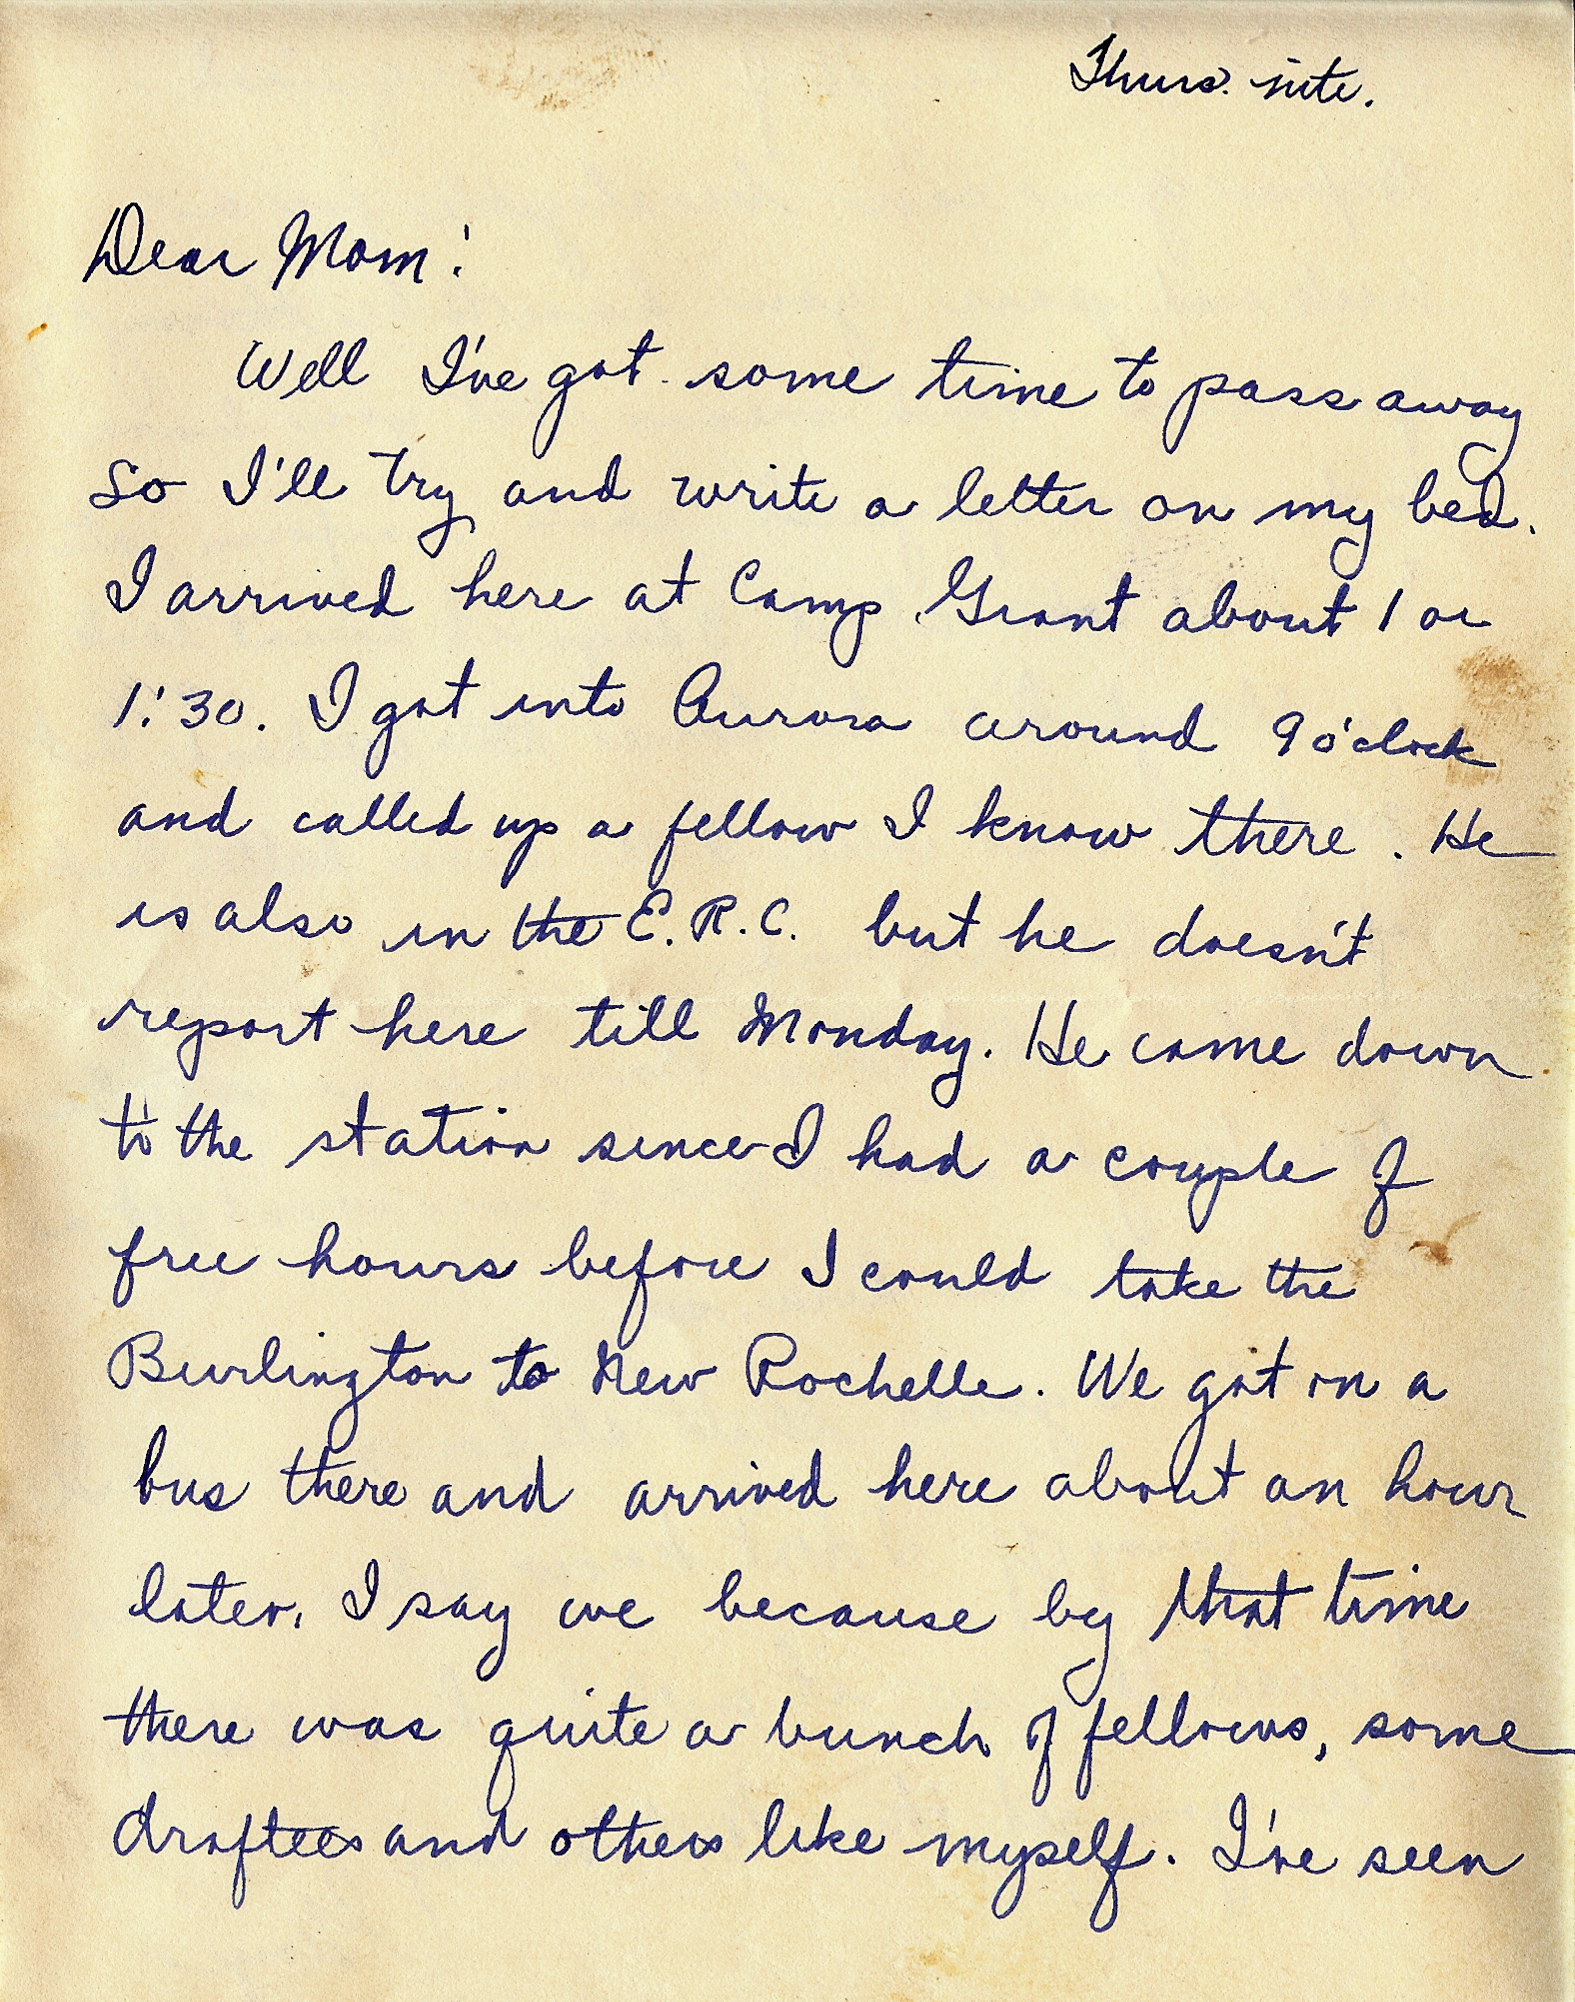 Thurs. nite.
Dear Mom:
Well I've got some time to pass away
so I'll try and write a letter on my bed.
I arrived here at Camp Grant about 1 or
1:30. I got into Aurora around 9 o'clock
and called up a fellow I know there. He
is also in the E.R.C. but he doesn't
report here till Monday. He came down
to the station since I had a couple of
free hours before I could take the
Burlington to New Rochelle. We got on a
bus there and arrived here about an hour
later. I say we because by that time
there was quite a bunch of fellows, some
draftees and others like myself. I've seen